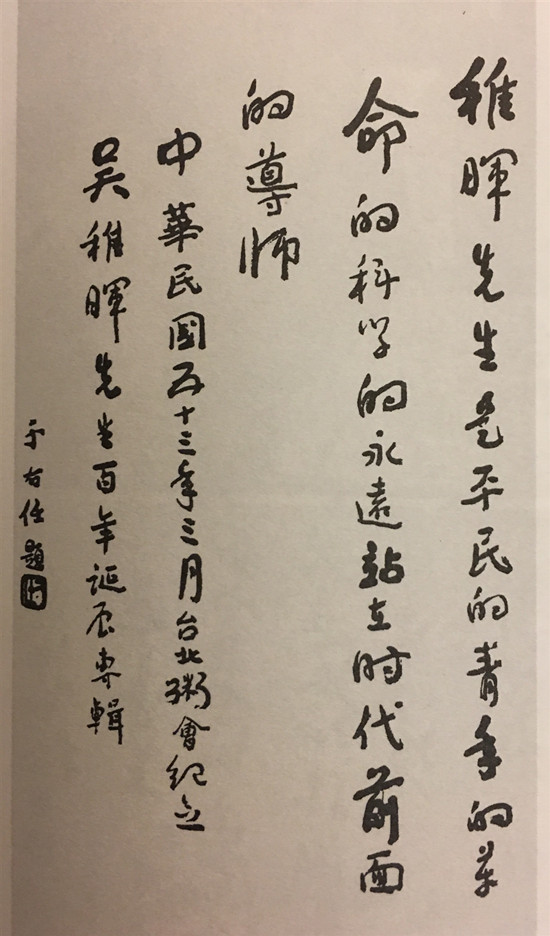 稚暉先生是平民的青年的革
命的科学的永遠站在时代前面
的導师
中華民國五十三年三月台北粥會紀念
吳稚暉先生百年誕辰專輯
于右任題